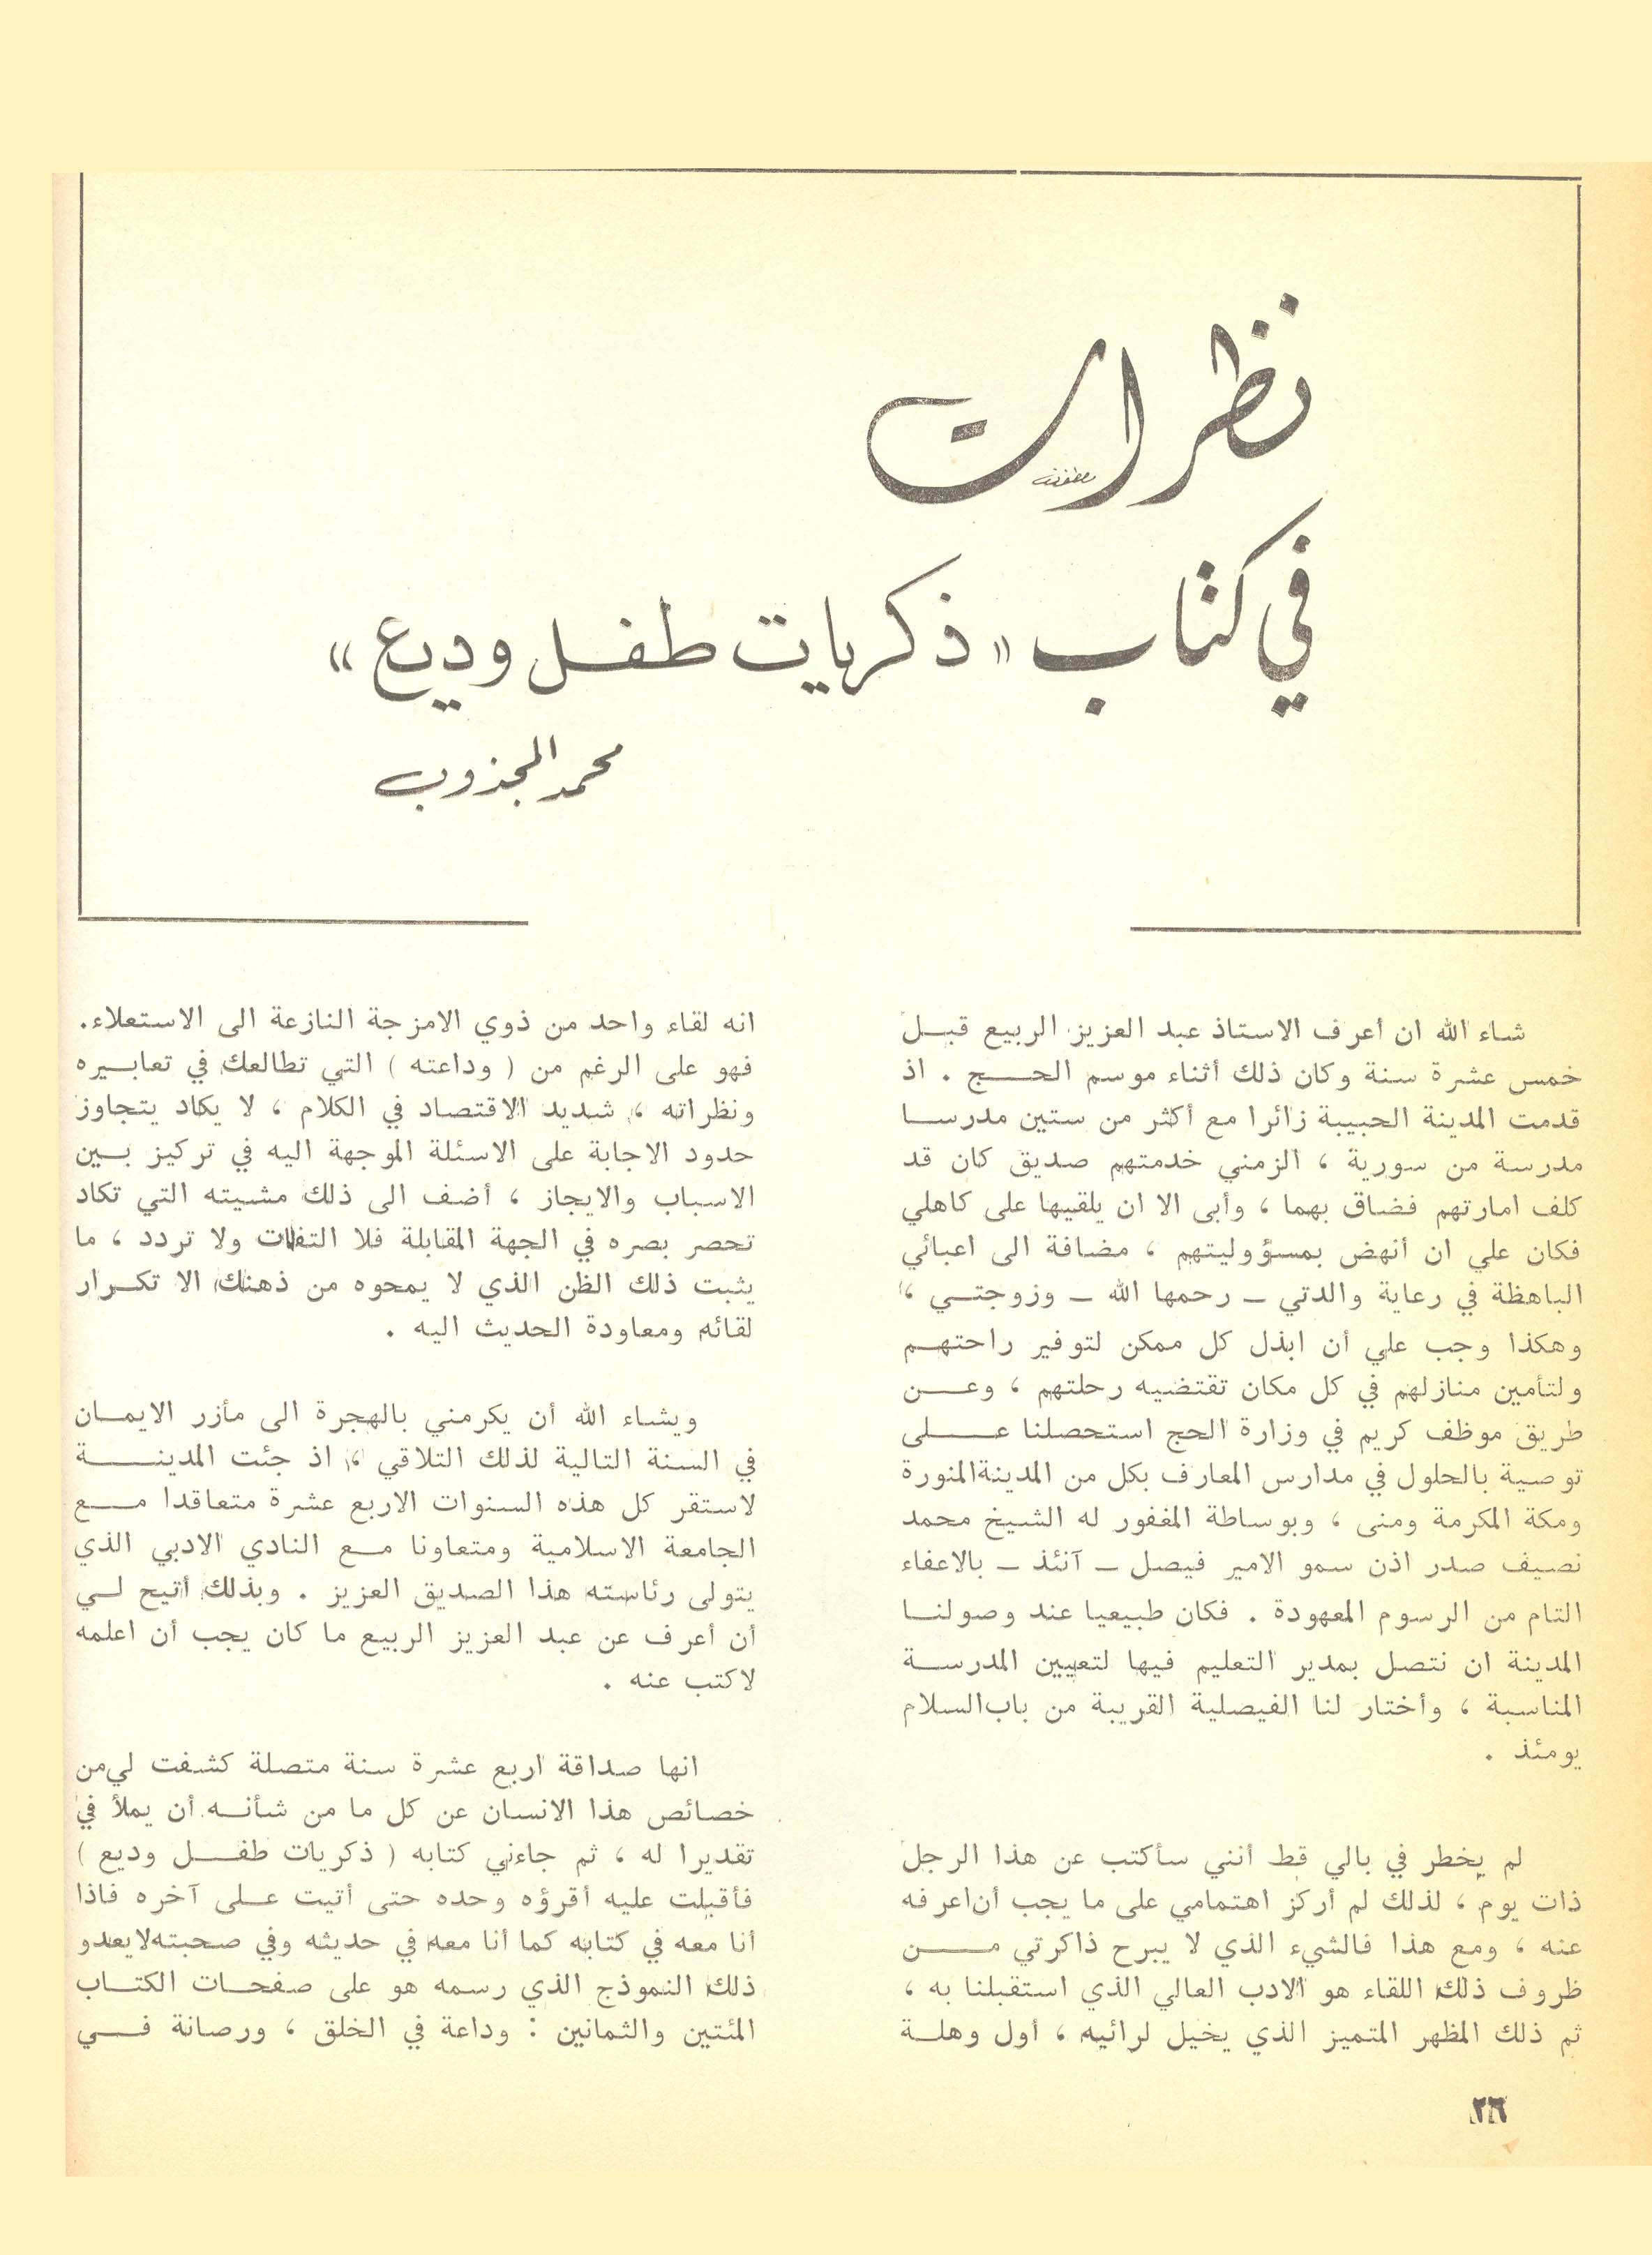 نظرات
في كتاب « ذكريات طفل وديع »
محمد المجذوب
شاء الله ان أعرف الاستاذ عبد العزيز الربيع قبل
خمس عشرة سنة وكان ذلك أثناء موسم الحج . اذ
قدمت المدينة الحبيبة زائرا مع أكثر من ستين مدرسا
مدرسة من سورية ، الزمني خدمتهم صديق كان قد
كلف امارتهم فضاق بهما ، وأبى الا ان يلقيها على كاهلي
فكان علي ان أنهض بمسؤوليتهم ، مضافة الى اعبائي
الباهظة في رعاية والدتي – رحمها الله – وزوجتي ،
وهكذا وجب علي أن ابذل كل ممكن لتوفير راحتهم
ولتأمين منازلهم في كل مكان تقتضيه رحلتهم ، وعن
طريق موظف كريم في وزارة الحج استحصلنا على
توصية بالحلول في مدارس المعارف بكل من المدينة المنورة
ومكة المكرمة ومنى ، وبوساطة المغفور له الشيخ محمد
نصيف صدر اذن سمو الامير فيصل – آنئذ – بالاعفاء
التام من الرسوم المعهودة . فكان طبيعيا عند وصولنا
المدينة ان نتصل بمدير التعليم فيها لتعيين المدرسة
المناسبة ، وأختار لنا الفيصلية القريبة من باب السلام
يومئذ .
لم يخطر في بالي قط أنني سأكتب عن هذا الرجل
ذات يوم ، لذلك لم أركز اهتمامي على ما يجب أن اعرفه
عنه ، ومع هذا فالشيء الذي لا يبرح ذاكرتي من
ظروف ذلك اللقاء هو الادب العالي الذي استقبلنا به ،
ثم ذلك المظهر المتميز الذي يخيل لرائيه ، أول وهلة
انه لقاء واحد من ذوي الامزجة النازعة الى الاستعلاء.
فهو على الرغم من ( وداعته ) التي تطالعك في تعابيره
ونظراته ، شديد الاقتصاد في الكلام ، لا يكاد يتجاوز
حدود الاجابة على الاسئلة الموجهة اليه في تركيز بين
الاسباب والايجاز ، أضف الى ذلك مشيته التي تكاد
تحصر بصره في الجهة المقابلة فلا التفات ولا تردد ، ما
يثبت ذلك الظن الذي لا يمحوه من ذهنك الا تكرار
لقائه ومعاودة الحديث اليه .
ويشاء الله أن يكرمني بالهجرة الى مأزر الايمان
في السنة التالية لذلك التلاقي ، اذ جئت المدينة
لاستقر كل هذه السنوات الاربع عشرة متعاقدا مع
الجامعة الاسلامية ومتعاونا مع النادي الادبي الذي
يتولى رئاسته هذا الصديق العزيز . وبذلك أتيح لي
أن أعرف عن عبد العزيز الربيع ما كان يجب أن اعلمه
لاكتب عنه .
انها صداقة اربع عشرة سنة متصلة كشفت لي من
خصائص هذا الانسان عن كل ما من شأنه أن يملأ في
تقديرا له ، ثم جاءني كتابه ( ذكريات طفل وديع )
فأقبلت عليه أقرؤه وحده حتى أتيت على آخره فاذا
أنا معه في كتابه كما أنا معه في حديثه وفي صحبته لا يعدو
ذلك النموذج الذي رسمه هو على صفحات الكتاب
المئتين والثمانين : وداعة في الخلق ، ورصانة في
٢٦